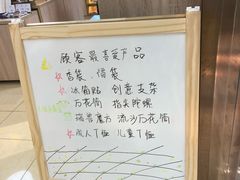 顾客最喜爱产品
香袋、借袋
冰箱贴 创意支架
万花筒 指尖陀螺
福兽魔方 流沙万花筒
成人T恤 儿童T恤